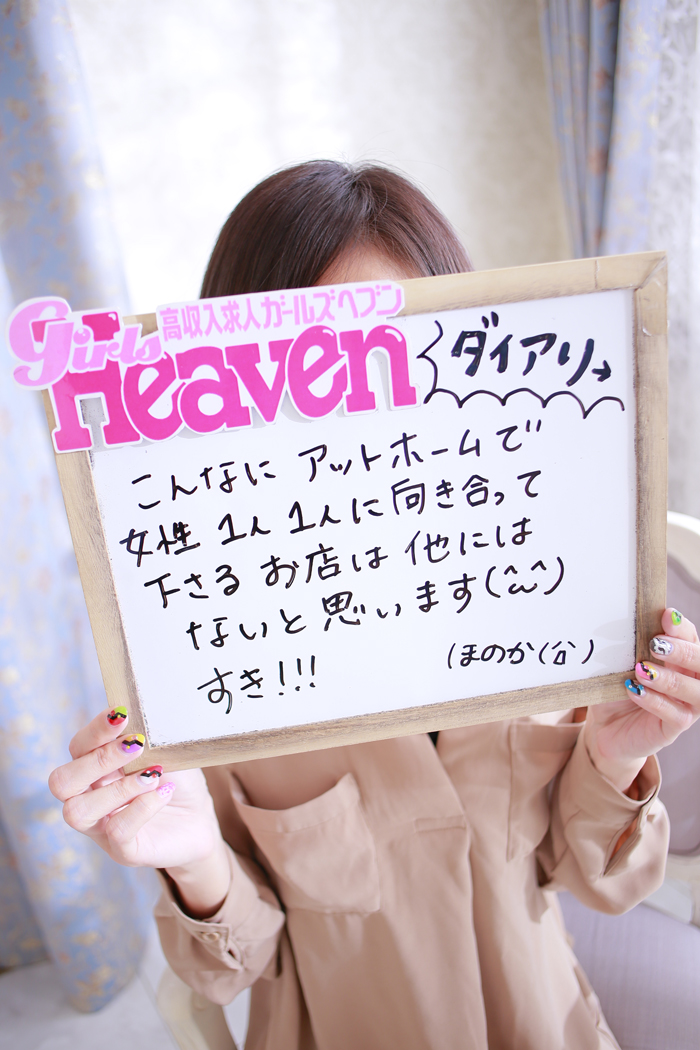 高収入求人ガールズヘブン
Girls
Heaven
ダイアリ→
こんなに アットホームで
女性 1人 1人に向き合って
下さる お店は 他には
ないと思います(^ω^)
すき!!!
ほのか(公)